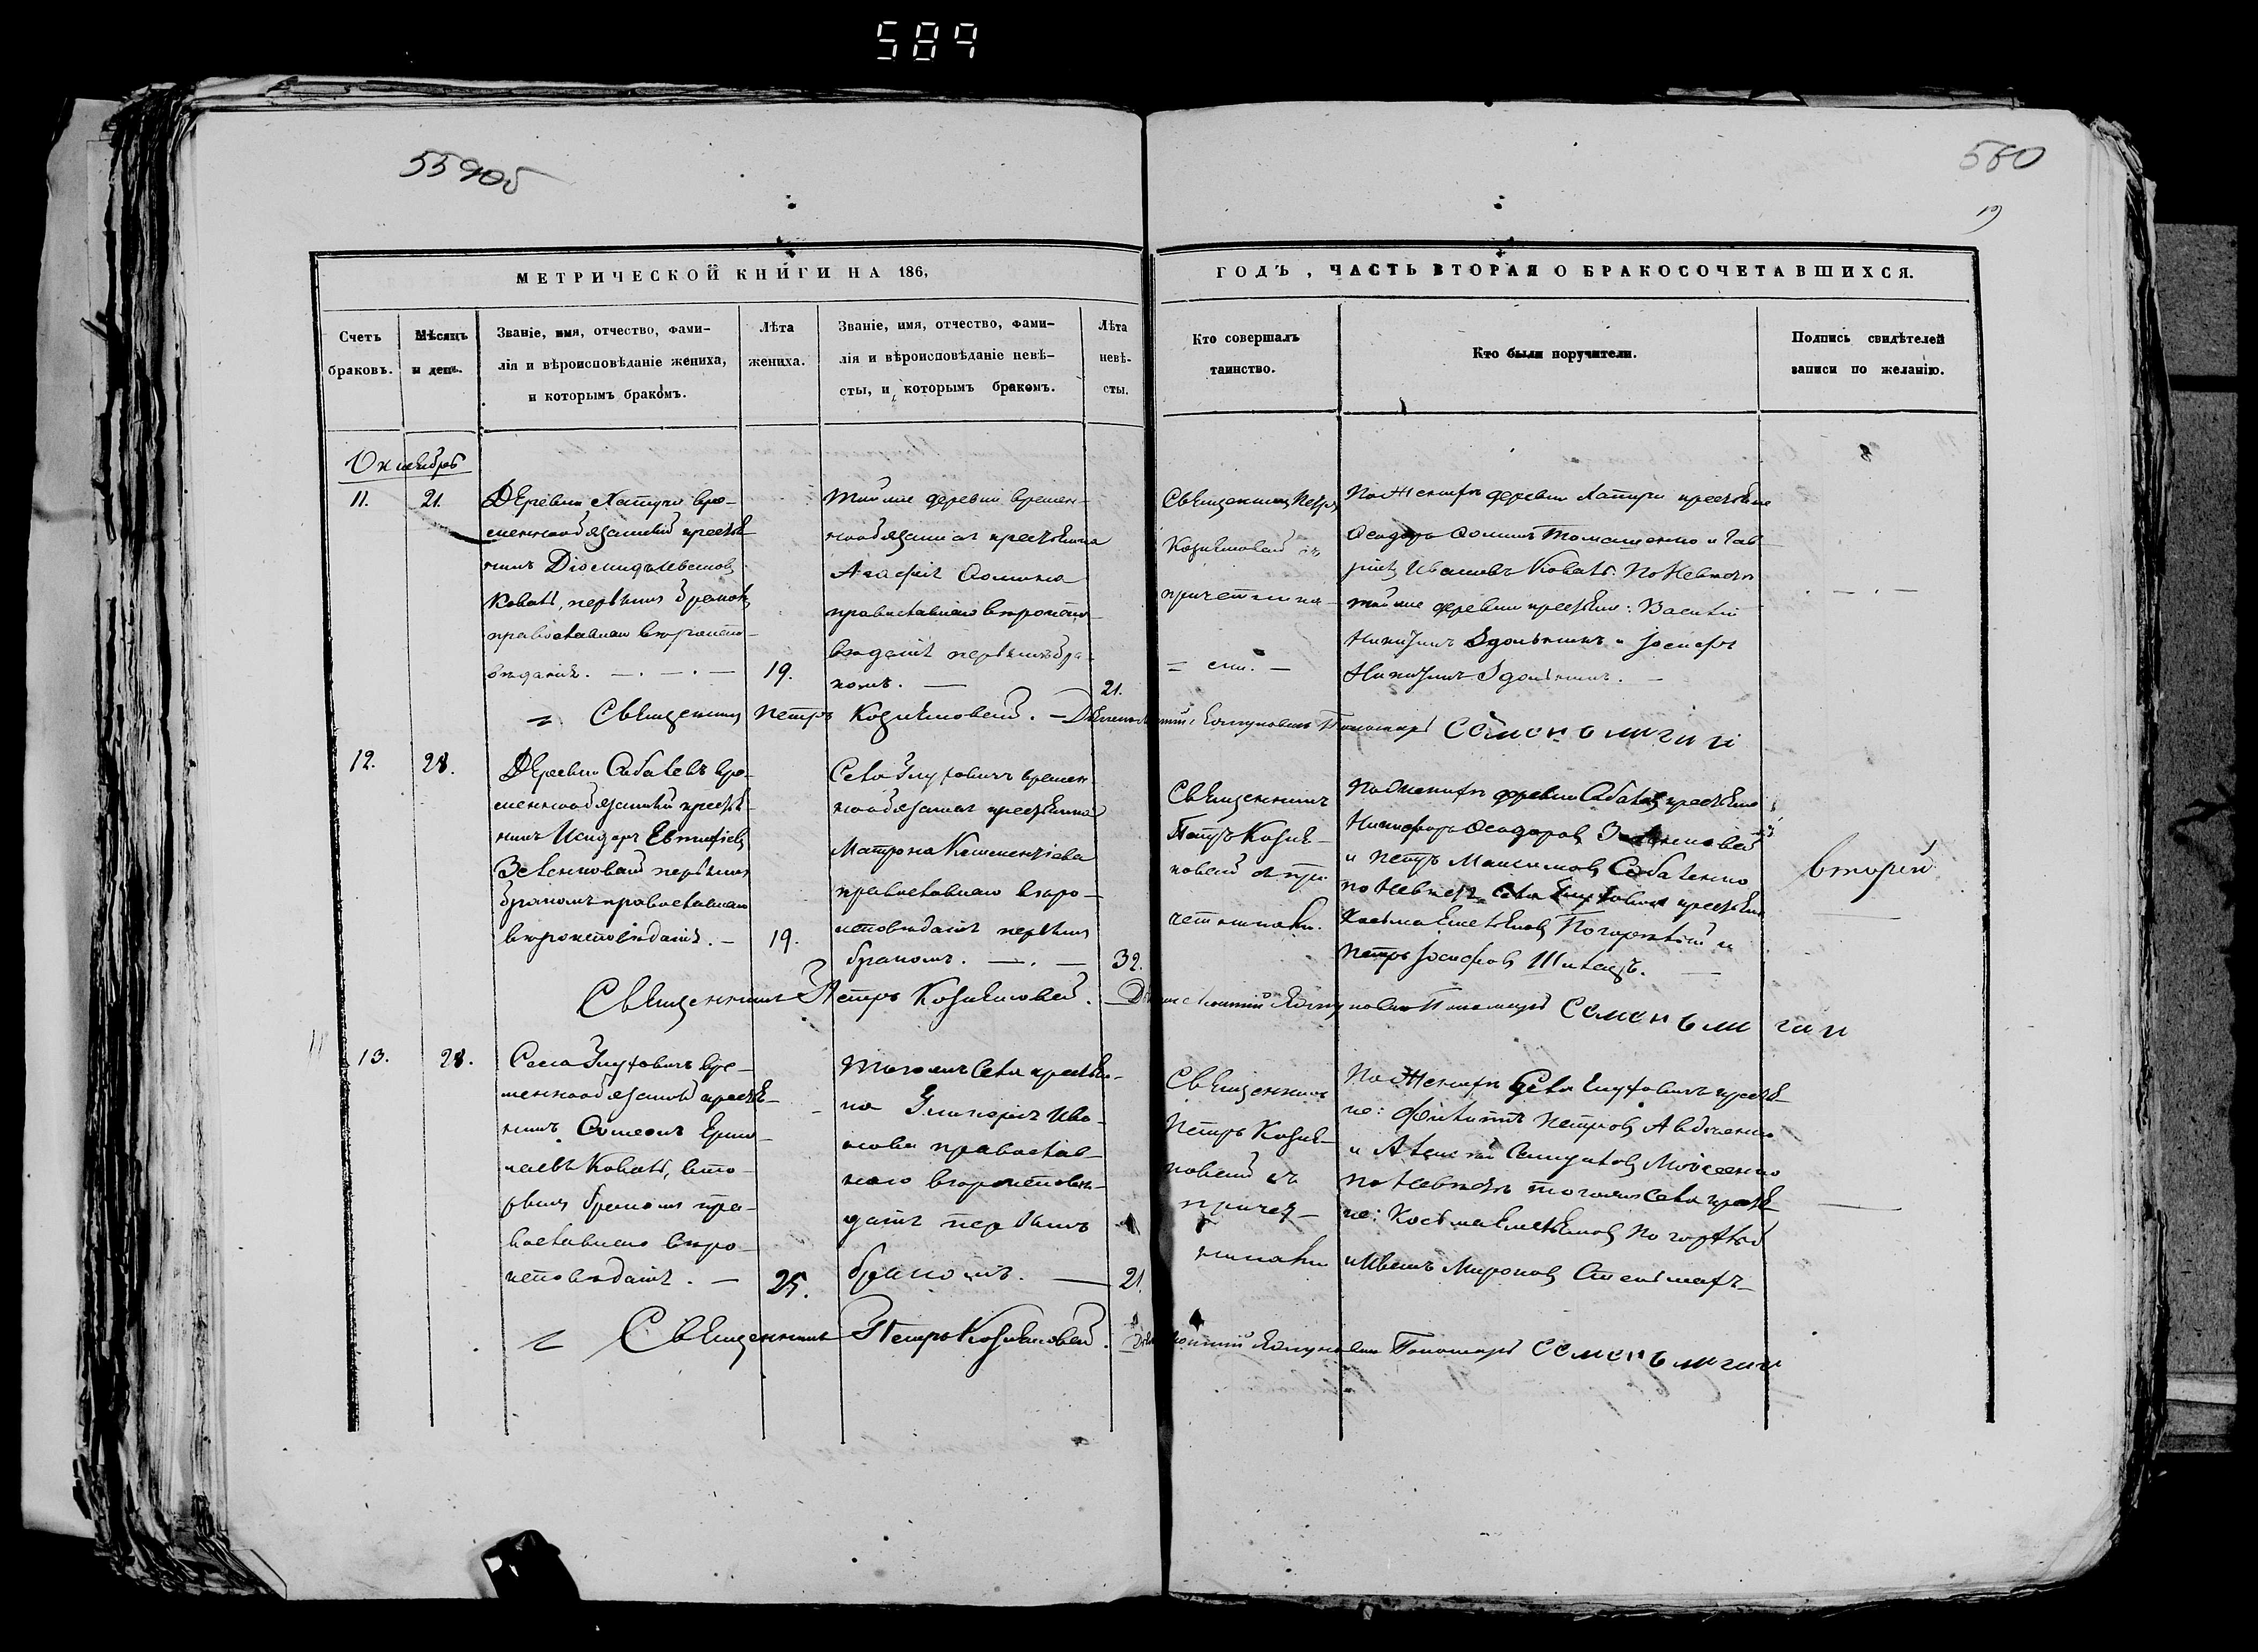 589
559об
560
19
МЕТРИЧЕСКОЙ КНИГИ НА 186,
ГОДЪ, ЧАСТЬ ВТОРАЯ О БРАКОСОЧЕТАВШИХСЯ.
Счетъ
браковъ.
Мѣсяцъ
и день.
Званіе, имя, отчество, фами-
лія и вѣроисповѣданіе жениха,
и которымъ бракомъ.
Лѣта
жениха.
Званіе, имя, отчество, фами-
лія и вѣроисповѣданіе невѣ-
сты, и которымъ бракомъ.
Лѣта
невѣ-
сты.
Кто совершалъ
таинство.
Кто были поручители.
Подпись свидѣтелей
записи по желанію.
Октябрь
11.
21.
Деревни Хатучи вре-
меннообязанный крестья
нинъ Діомидъ Ивановъ
Коваль, первымъ бракомъ
православнаго вѣроиспо-
вѣданія.
19.
тойже деревни времен-
нообязанная крестьянка
Агафія Фомина
православнаго вѣроиспо-
вѣданія первымъ бра-
комъ.
21.
Священникъ Петръ
съ
причетника-
ми.
По женихѣ деревни Хатучи крестьяне
Феодоръ Фоминъ Томашенко и Гав-
ріилъ Ивановъ Коваль. По невѣстѣ
тойже деревни крестьяне: Василій
Никитинъ и Іосифъ
Никитинъ
Священникъ Петръ
Пономарь Семенъ
12.
28.
Деревни Сабалевъ вре-
меннообязанный крестья-
нинъ Исидоръ Евтифіевъ
первымъ
бракомъ православнаго
вѣроисповѣданія.
19.
Села Глуховичъ времен
нообязанная крестьянка
Матрона Климентіева
православнаго вѣро-
исповѣданія первымъ
бракомъ.
32.
Священникъ
Петръ
съ при
четниками.
По женихѣ деревни Сабалевъ крестьяне
Никифоръ Феодоровъ
и Петръ Максимовъ Сабаленко
по невѣстѣ села Глуховичъ крестьяне
Косьма Емельяновъ и
Петръ Іосифовъ
вторый
Священникъ Петръ
Пономарь Семенъ
13.
28.
Села Глуховичъ вре-
меннообязанный крестья-
нинъ Симеонъ Ермо-
лаевъ Коваль, вто-
рымъ бракомъ пра-
вославнаго вѣро-
исповѣданія.
25.
тогожъ села крестьян-
ка Гликерія Ива-
нова православ-
наго вѣроисповѣ-
данія первымъ
бракомъ.
21.
Священникъ
Петръ
съ
причет-
никами
По женихѣ села Глуховичъ крестья-
не: Петровъ Авдченко
и Алексѣй Моисеенко
по невѣстѣ тогожъ села крестья-
не: Косьма Емельяновъ
и Иванъ Мироновъ Стельмахъ
Священникъ Петръ
Пономарь Семенъ